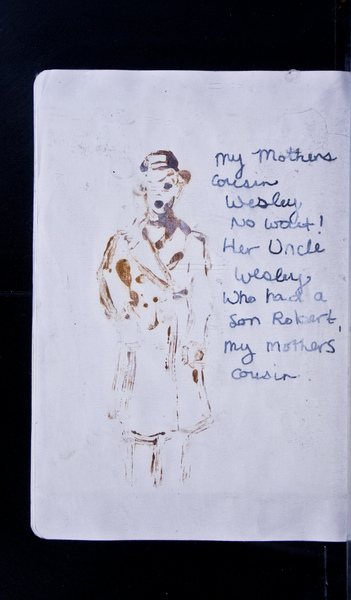 My Mothers
cousin
Wesley,
No wait!
Her Uncle
Wesley,
Who had a
Son Robert,
My Mothers
cousin